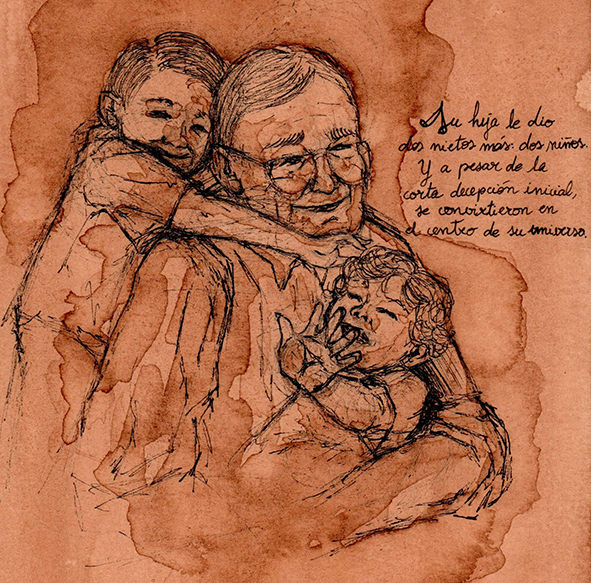 Su hija le dio
dos nietos más: dos niños.
Y a pesar de la
corta decepción inicial,
se convirtieron en
el centro de su universo.